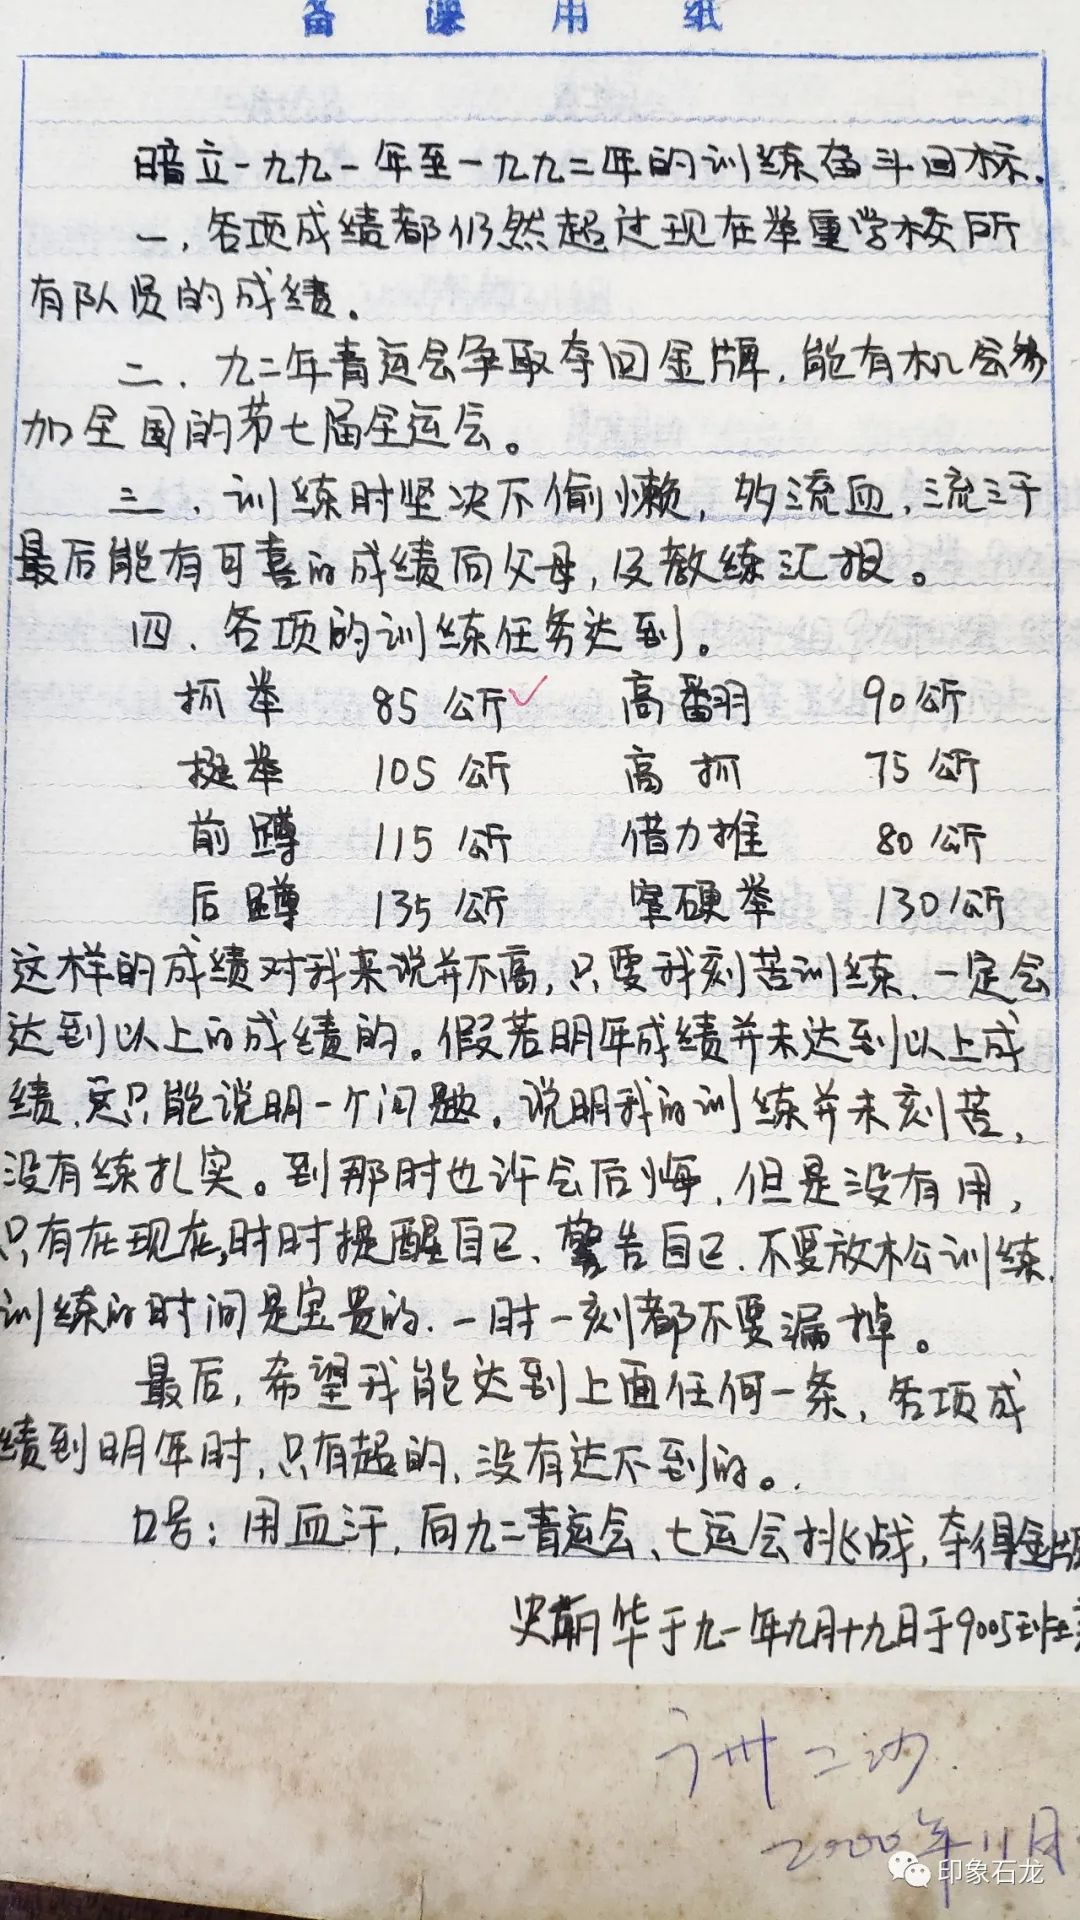 备课用纸
暗立一九九一年至一九九二年的训练奋斗目标.
一.各项成绩都仍然超过现在举重学校所
有队员的成绩。
二.九二年青运会争取夺回金牌,能有机会参
加全国的第七届全运会。
三.训练时坚决不偷懒,多流血,流汗
最后能有可喜的成绩向父母,及教练汇报。
四.各项的训练任务达到。
抓举 85公斤 高翻 90公斤
挺举 105公斤 高抓 75公斤
前蹲 115公斤 借力推 80公斤
后蹲 135公斤 窄硬举 130公斤
这样的成绩对我来说并不高,只要我刻苦训练.一定会
达到以上的成绩的。假若明年成绩并未达到以上成
绩.这只能说明一个问题。说明我的训练并未刻苦,
没有练扎实。到那时也许会后悔,但是没有用,
只有在现在,时时提醒自己、警告自己.不要放松训练.
训练的时间是宝贵的.一时一刻都不要漏掉。
最后,希望我能达到上面任何一条,各项成
绩到明年时,只有超的,没有达不到的。
口号:用血汗,向九二青运会、七运会挑战,夺得金牌
史朝华于九一年九月十九日于9005班
广州二沙
2000年11月
印象石龙